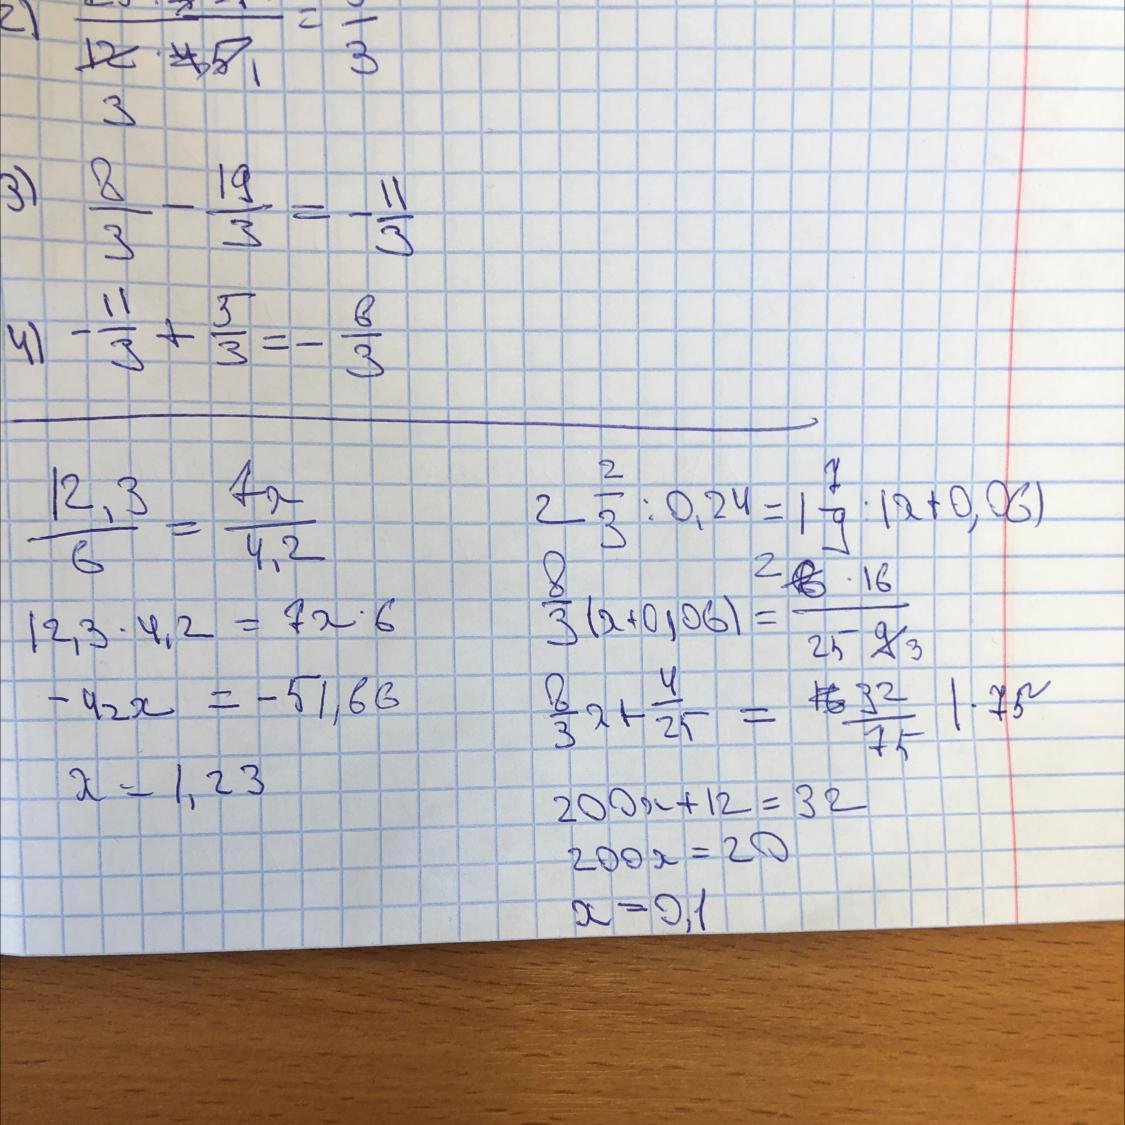 2) / 12 · 45 1 = / 3
3
3) 8/3 - 19/3 = - 11/3
4) - 11/3 + 5/3 = - 6/3
12,3/6 = 7x/4,2
12,3 · 4,2 = 7x · 6
-42x = -51,66
x = 1,23
2 2/3 : 0,24 = 1 7/9 : (x+0,06)
8/3 (x+0,06) = 2 6 · 16 / 25 9 3
8/3 x + 4/25 = 32/75 | · 75
200x + 12 = 32
200x = 20
x = 0,1